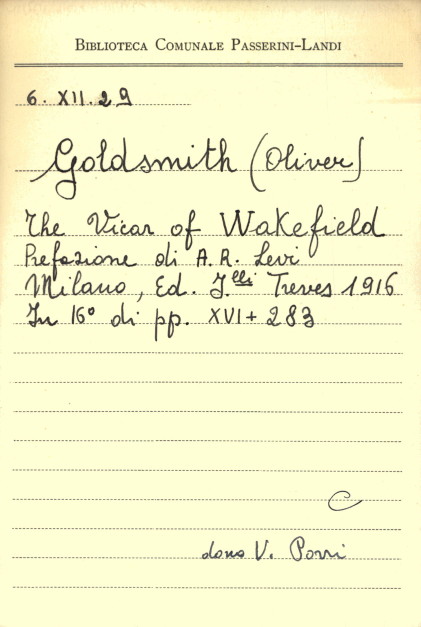 BIBLIOTECA COMUNALE PASSERINI-LANDI
6. XII. 29
Goldsmith (Oliver)
The Vicar of Wakefield
Prefazione di A. R. Levi
Milano, Ed. F.lli Treves 1916
In 16° di pp. XVI + 283
C
dono V. Porri